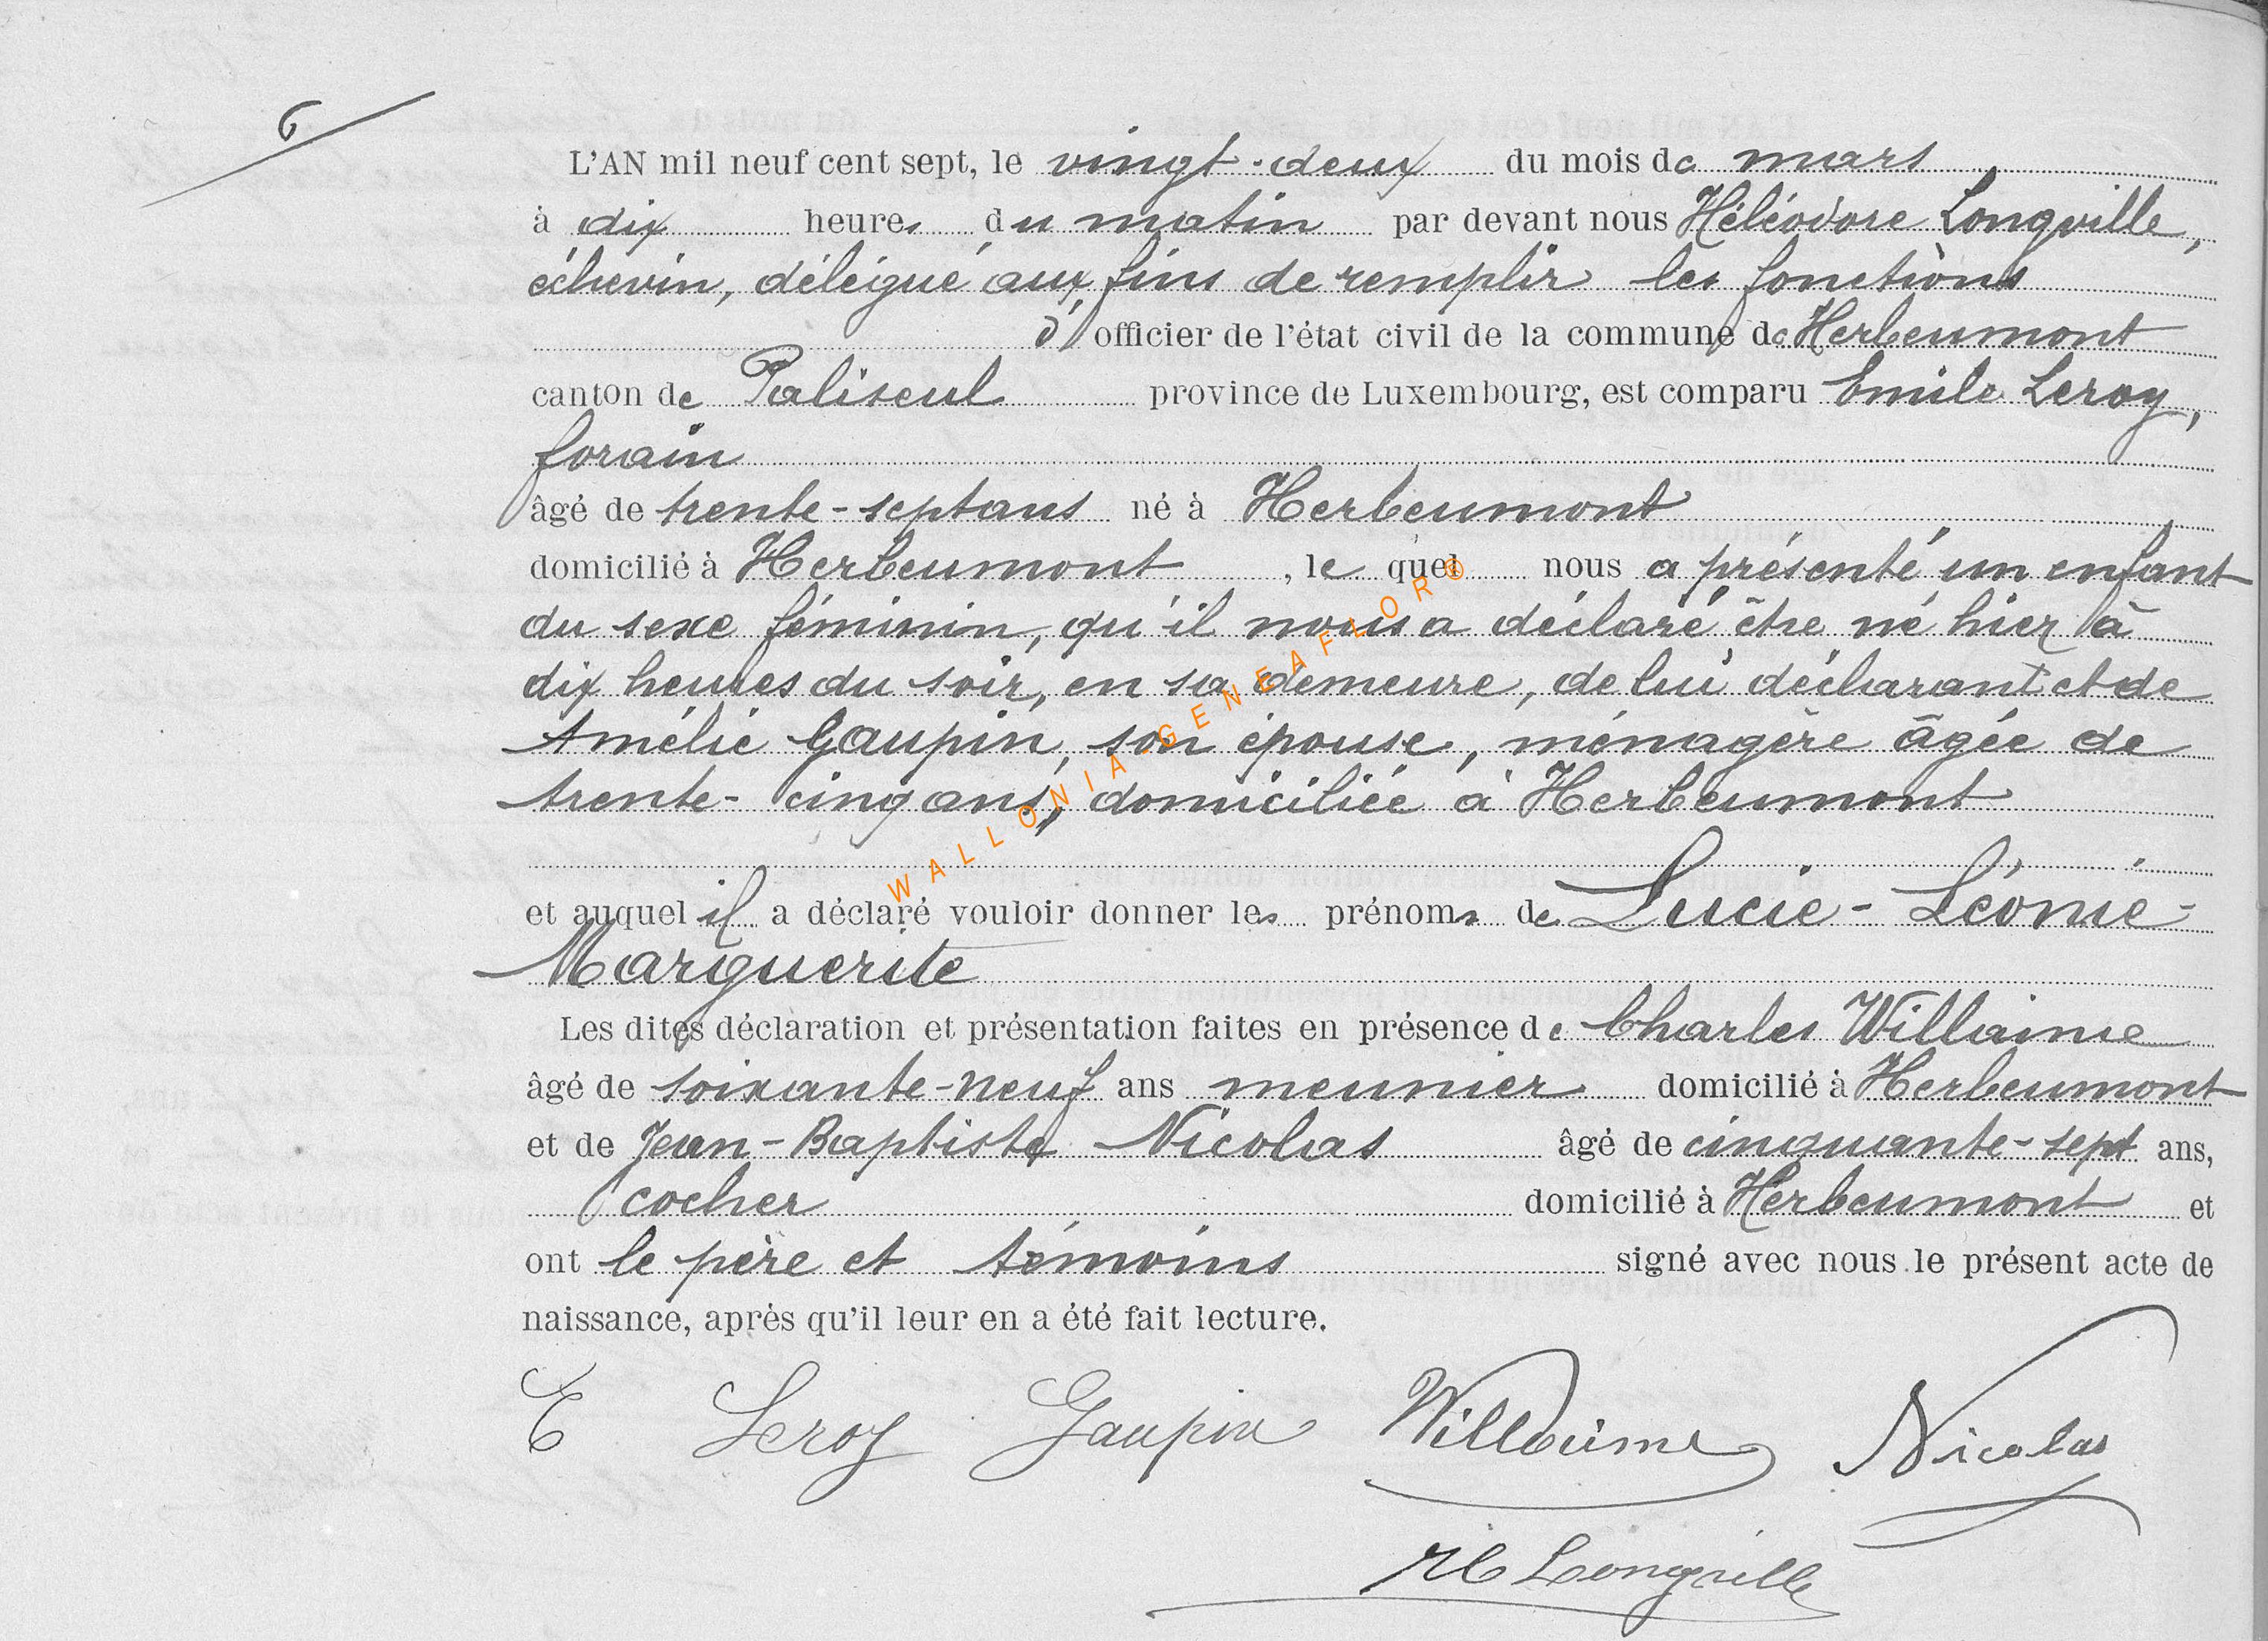 6
L'AN mil neuf cent sept, le vingt-deux du mois de mars
à dix heures du matin par devant nous Héléodore Longville,
échevin, délégué aux fins de remplir les fonctions
d'officier de l'état civil de la commune de Herbeumont
canton de Paliseul province de Luxembourg, est comparu Emile Leroy,
forain
âgé de trente-sept ans né à Herbeumont
domicilié à Herbeumont, le quel nous a présenté un enfant
du sexe féminin, qu'il nous a déclaré être né hier à
dix heures du soir, en sa demeure, de lui déclarant et de
Amélie Gaupin, son épouse, ménagère âgée de
trente-cinq ans, domiciliée à Herbeumont
et auquel il a déclaré vouloir donner les prénoms de Lucie-Léonie-
Marguerite
Les dites déclaration et présentation faites en présence de Charles Willaime
âgé de soixante-neuf ans meunier domicilié à Herbeumont
et de Jean-Baptiste Nicolas âgé de cinquante-sept ans,
cocher domicilié à Herbeumont et
ont le père et témoins signé avec nous le présent acte de
naissance, après qu'il leur en a été fait lecture.
E Leroy Gaupin Willaime Nicolas
H Longville
WALLONIA-GENEAFLOR®